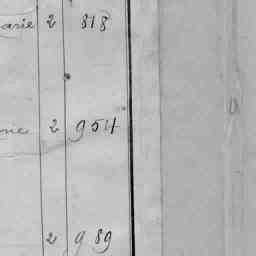 arie 2 818
ne 2 954
2 989